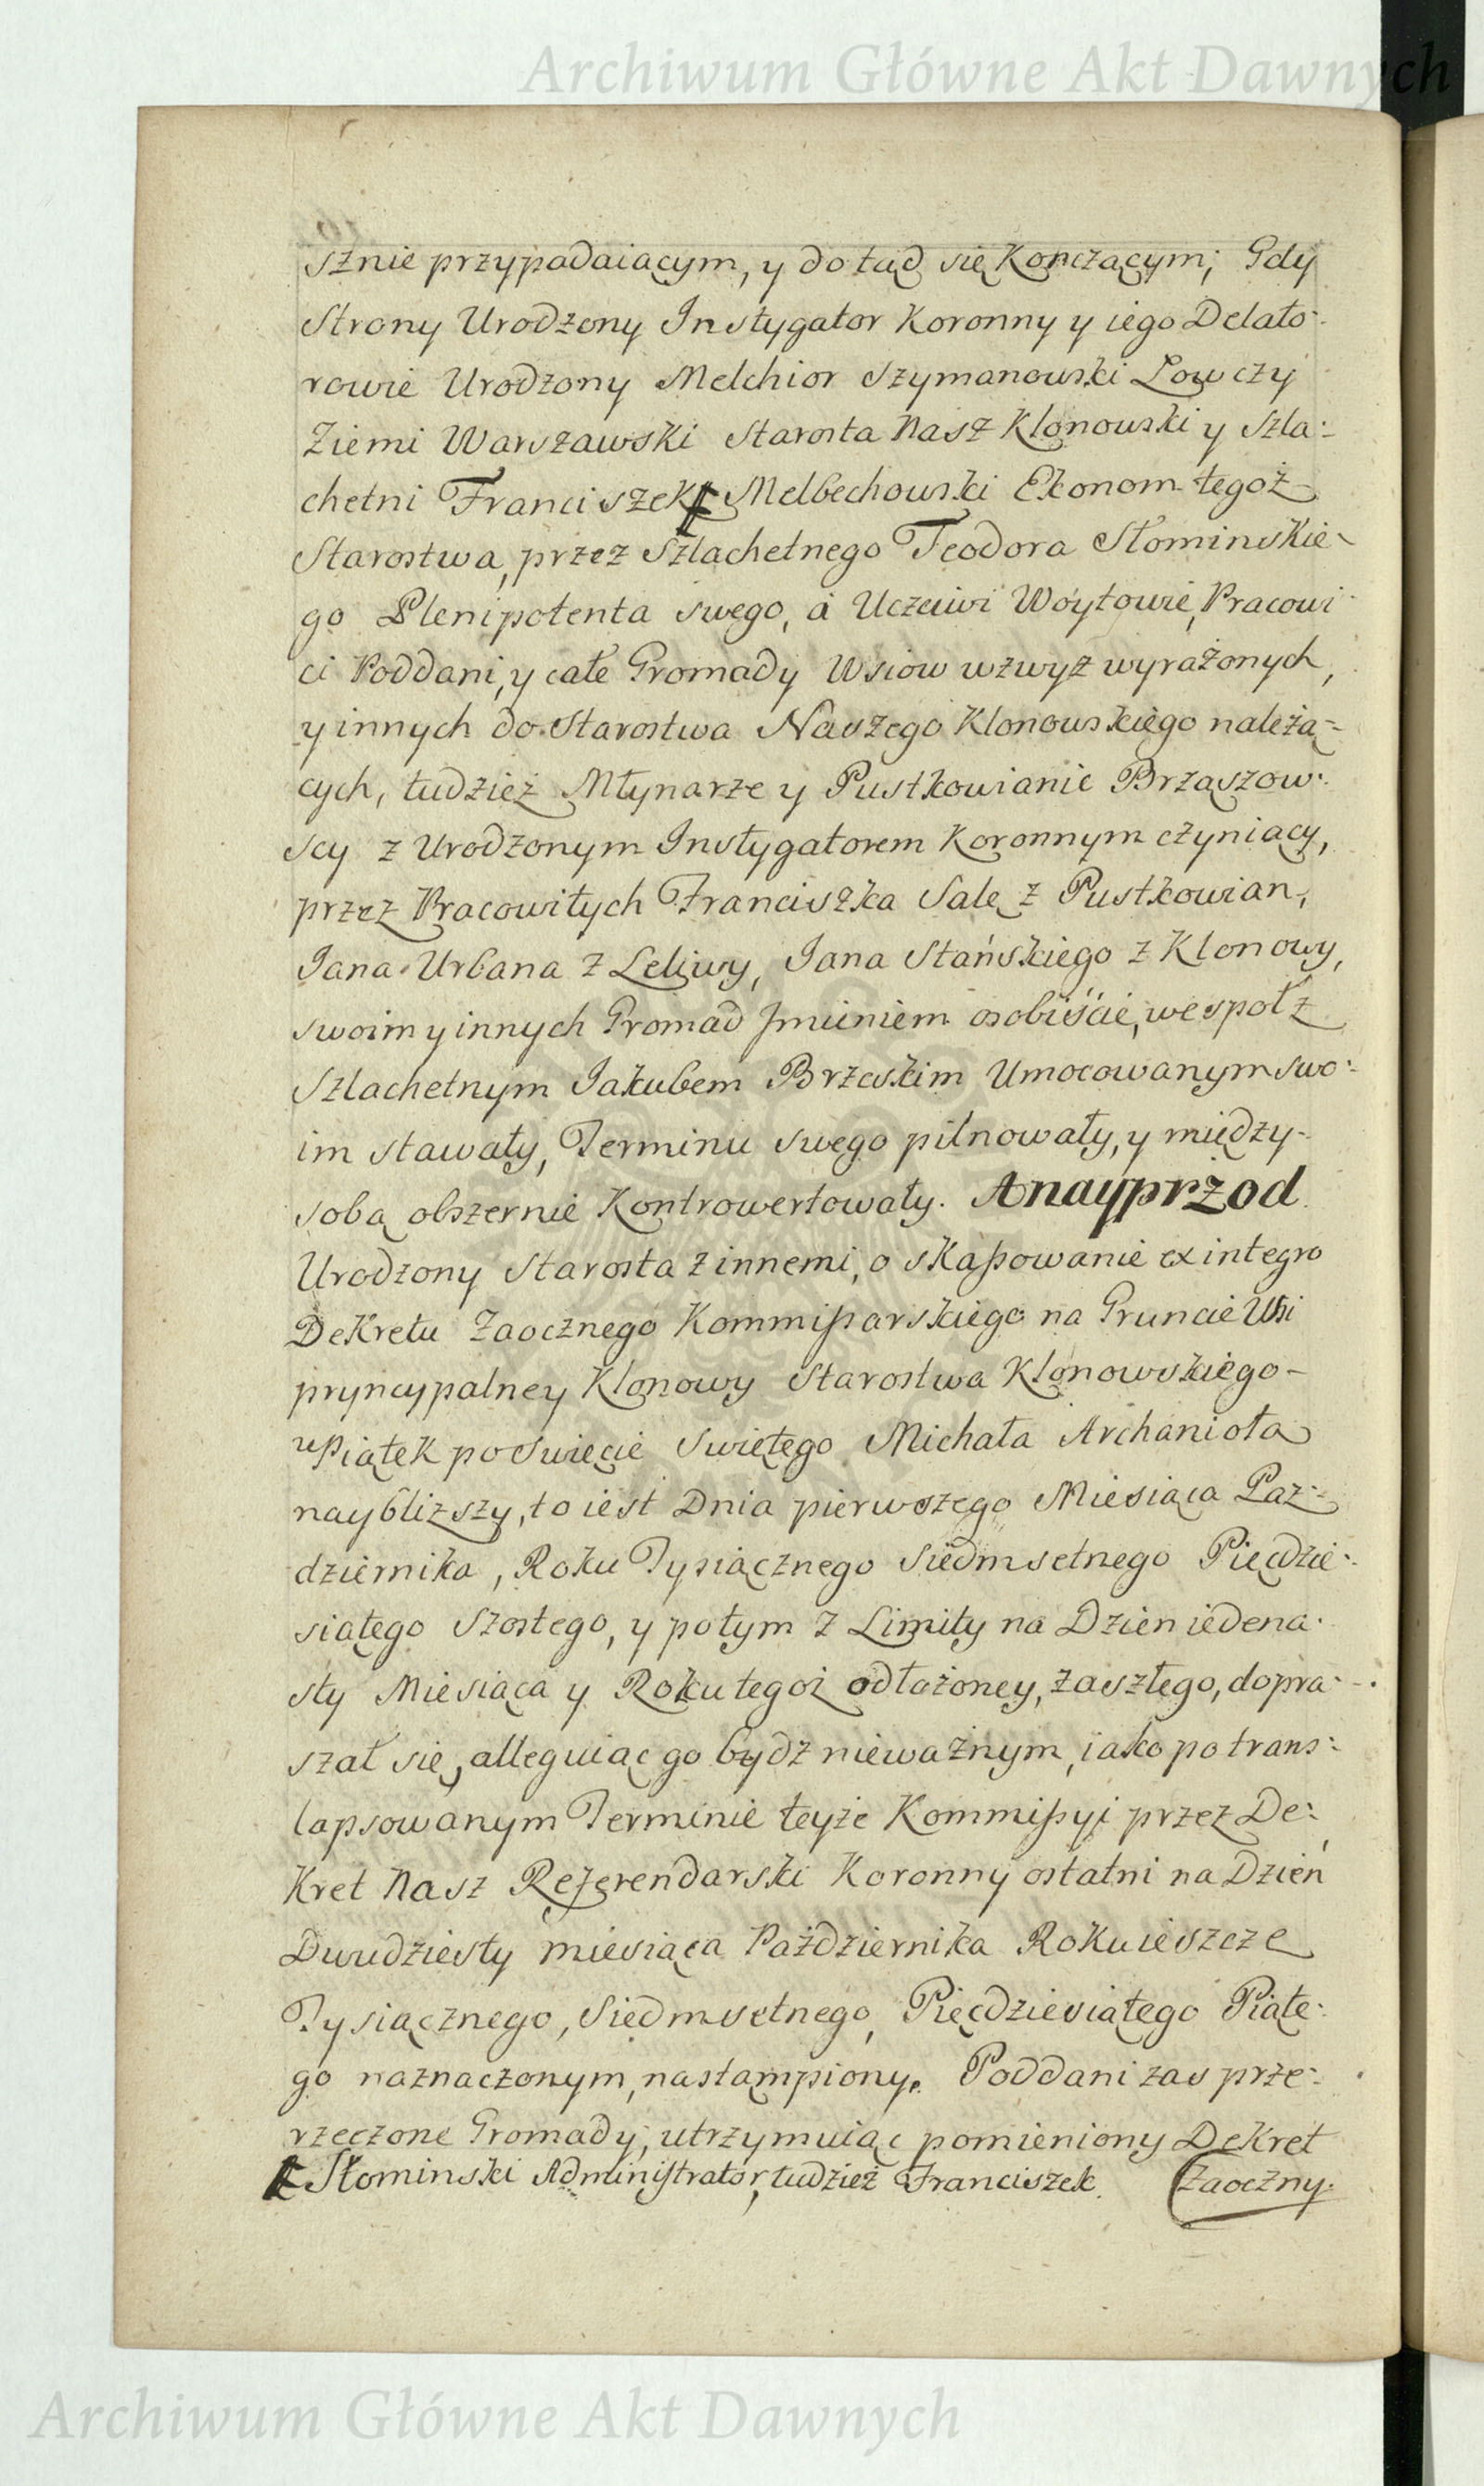 Archiwum Główne Akt Dawnych
sznie przypadaiącym, y do tąd się Konczącym; Gdy
Strony Urodzony Instygator Koronny y iego Delato:
rowie Urodzony Melchior Szymanowski Łowczy
Ziemi Warszawski Starosta Nasz Klonowski y Szla:
chetni Franciszek Melbechowski Ekonom tegoż
Starostwa, przez Szlachetnego Teodora Słominskie-
go Plenipotenta swego, á Uczciwi Woytowie, Pracowi-
ci Poddani, y całe Gromady Wsiow wzwyz wyrażonych,
y innych do Starostwa Naszego Klonowskiego należą-
cych, tudzież Młynarze y Pustkowianie Brząszow:
scy z Urodzonym Instygatorem Koronnym czyniący,
przez Pracowitych Franciszka Salę z Pustkowian,
Jana Urbana z Leliwy, Jana Stańskiego z Klonowy,
swoim y innych Gromad Jmieniem osobiście, wespoł z
Szlachetnym Jakubem Brzeskim Umocowanym swo:
im stawały, Terminu swego pilnowały, y między-
sobą obszernie Kontrowertowały. A nayprżod
Urodzony Starosta z innemi, o skaßowanie ex integro
Dekretu Zaocznego Kommißarskiego na Gruncie Wsi
pryncypalney Klonowy Starostwa Klonowskiego-
w Piątek po Swięcie Swiętego Michała Archanioła
naybliższy, to iest Dnia pierwszego Miesiąca Paz:
dziernika, Roku Tysiącznego Siedmsetnego Pięćdzie:
siątego Szostego, y potym z Limity na Dzien iedena:
sty Miesiąca y Roku tegoż odłożoney, zaszłego, dopra:
szał się, alleguiąc go bydz nieważnym, iako po trans:
lapsowanym Terminie teyże Kommißyi przez De:
Kret Nasz Referendarski Koronny ostatni na Dzień
Dwudziesty miesiąca Października Roku ieszcze
Tysiącznego, Siedmsetnego, Pięcdziesiątego Piąte:
go naznaczonym, nastąmpiony. Poddani zas prze:
rzeczone Gromady, utrzymuiąc pomieniony Dekret
Słominski Administrator, tudzież Franciszek. Zaoczny.
Archiwum Główne Akt Dawnych